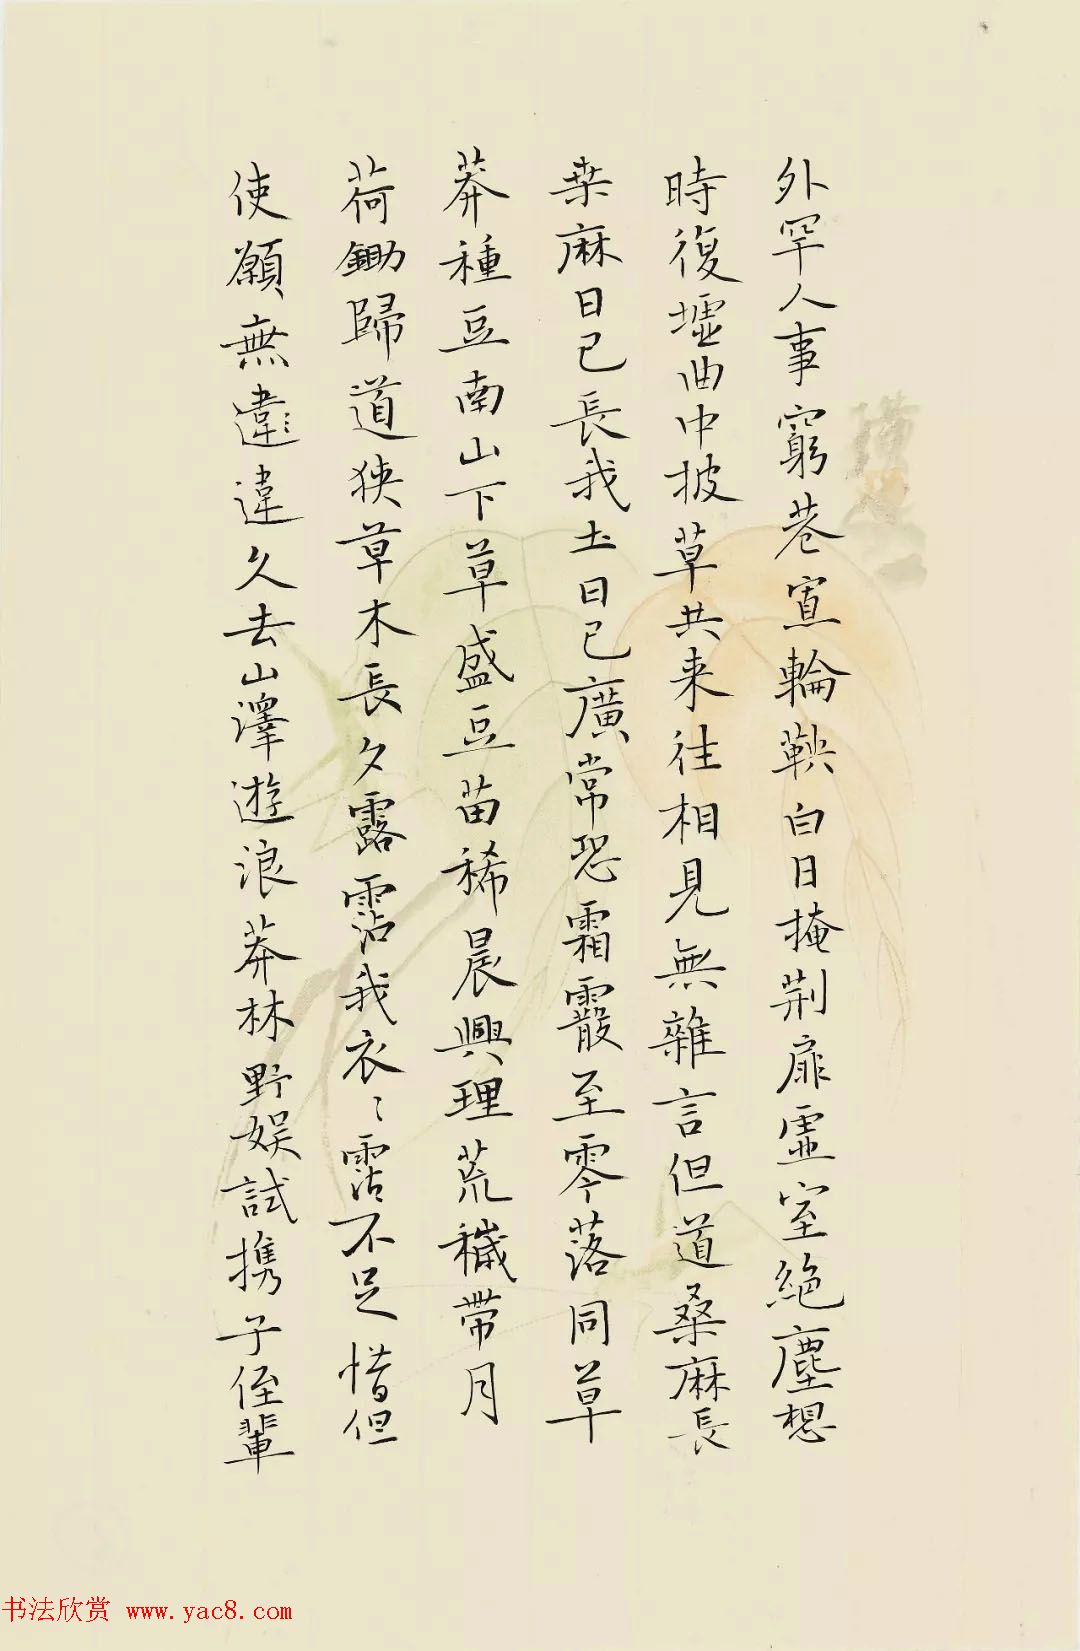 外罕人事窮巷寡輪鞅白日掩荆扉虚室絶塵想
時復墟曲中披草共来往相見無雜言但道桑麻長
桒麻日已長我土日已廣常恐霜霰至零落同草
莽種豆南山下草盛豆苗稀晨興理荒穢帶月
荷鋤歸道狹草木長夕露霑我衣〻霑不足惜但
使願無違違久去山澤遊浪莽林野娱試携子侄輩
书法欣赏 www.yac8.com